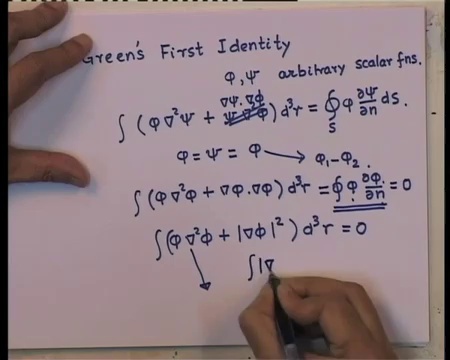 Green's First Identity
φ, ψ arbitrary scalar fns.
∇ψ.∇φ
∫ (φ∇²ψ + ) d³r = ∮_S φ ∂ψ/∂n ds.
φ = ψ = φ → φ₁-φ₂.
∫ (φ∇²φ + ∇φ.∇φ) d³r = ∮ φ. ∂φ/∂n = 0
∫(φ∇²φ + |∇φ|²) d³r = 0
∫|∇